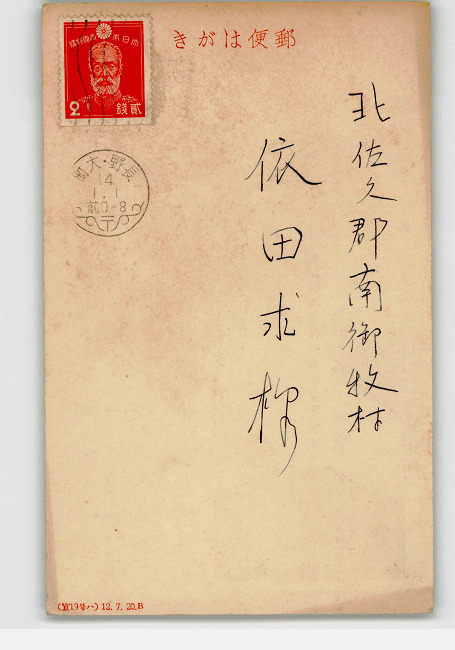 郵便はがき
2 貳銭
長野・大町
14
1.1
前0-8
〒
北佐久郡南御牧村
依田求様
19号ハ) 12.7.20.B